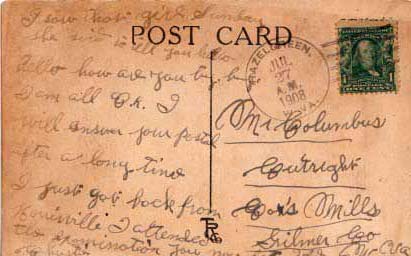 I saw that girl Sunday
she said to tell you hello
POST CARD
Hello how are you by
I am all O.K. I
will answer your postal
after a long time
I just got back from
Louisville I attended
the examination you
HAZELGREEN,
JUL
27
A.M.
1908
1
Mr Columbus
Cutright
Cox's Mills
Gilmer Co
W Va